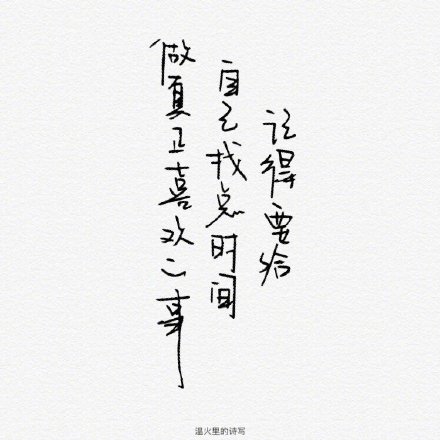 记得要给
自己找点时间
做真正喜欢之事
温火里的诗写